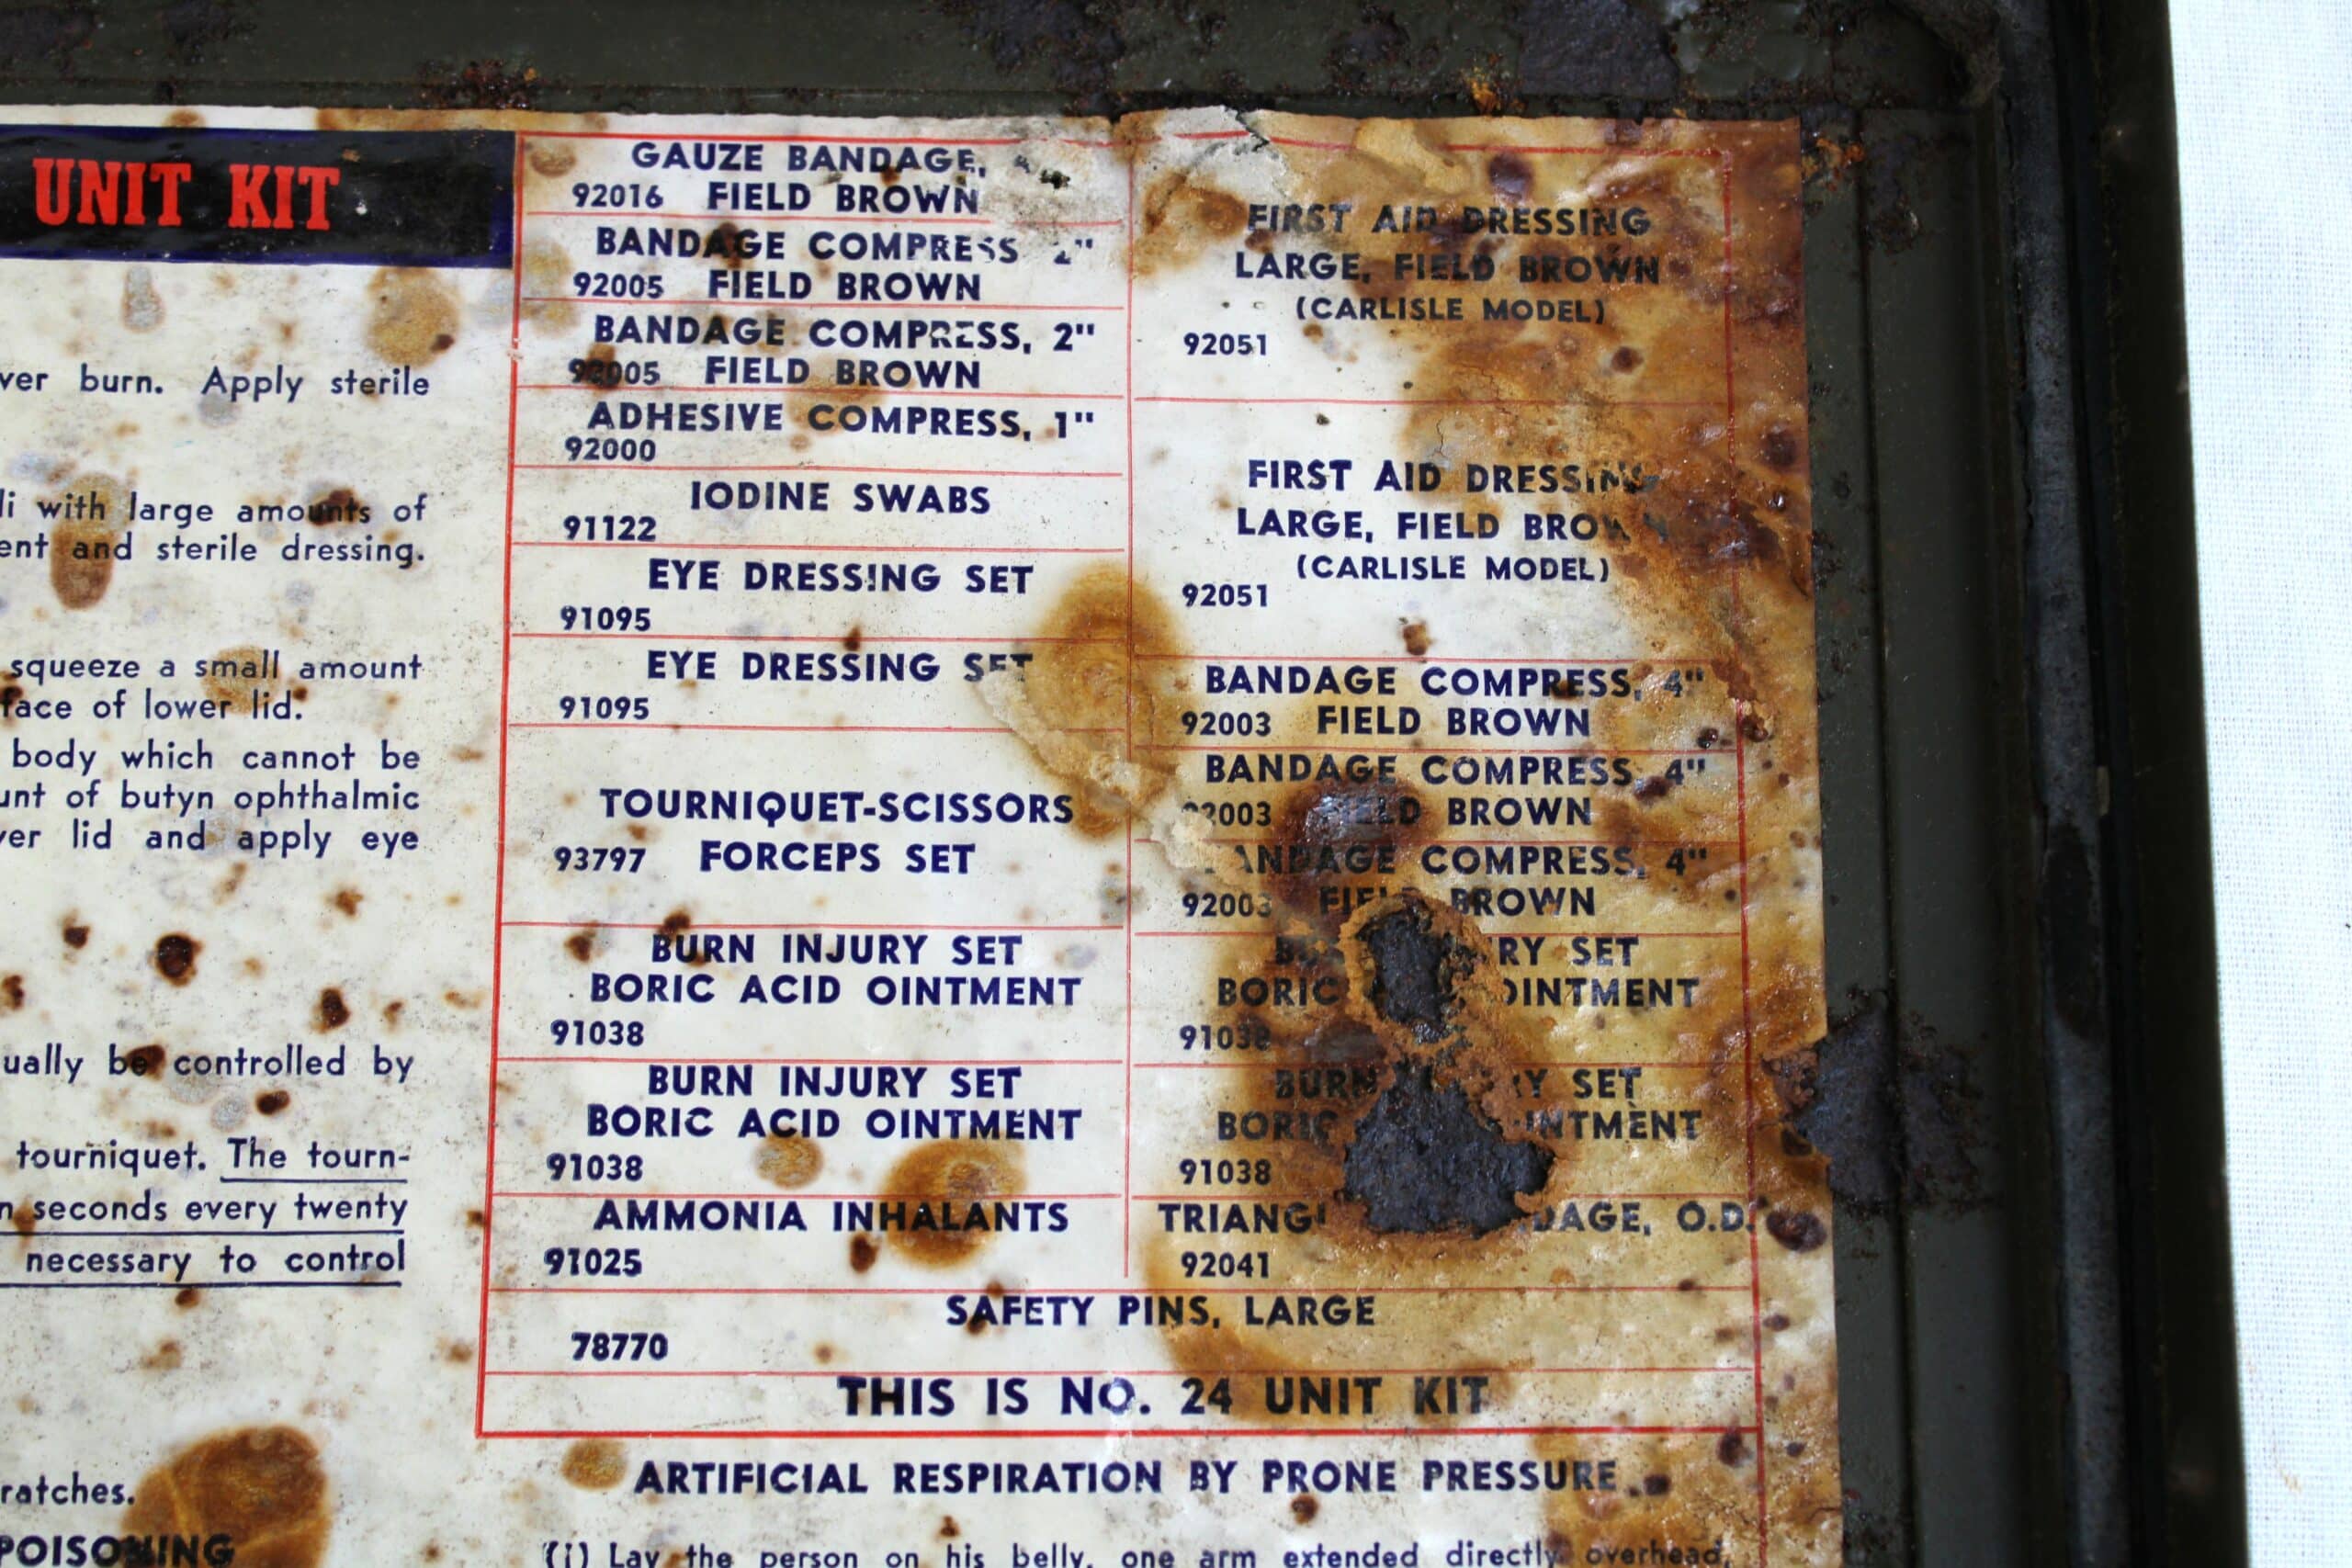 UNIT KIT
ver burn. Apply sterile
with large amounts of
and sterile dressing.
squeeze a small amount
face of lower lid.
body which cannot be
of butyn ophthalmic
lid and apply eye
be controlled by
tourniquet. The tourn-
seconds every twenty
necessary to control
ratches.
POISONING
GAUZE BANDAGE,
92016 FIELD BROWN
BANDAGE COMPRESS 2"
92005 FIELD BROWN
BANDAGE COMPRESS, 2"
92005 FIELD BROWN
ADHESIVE COMPRESS, 1"
92000
IODINE SWABS
91122
EYE DRESSING SET
91095
EYE DRESSING SET
91095
TOURNIQUET-SCISSORS
93797 FORCEPS SET
BURN INJURY SET
BORIC ACID OINTMENT
91038
BURN INJURY SET
BORIC ACID OINTMENT
91038
AMMONIA INHALANTS
91025
FIRST AID DRESSING
LARGE, FIELD BROWN
(CARLISLE MODEL)
92051
FIRST AID DRESSING
LARGE, FIELD BROWN
(CARLISLE MODEL)
92051
BANDAGE COMPRESS, 4"
92003 FIELD BROWN
BANDAGE COMPRESS, 4"
92003 FIELD BROWN
BANDAGE COMPRESS, 4"
92003 FIELD BROWN
SET
BORIC OINTMENT
91038
BURN SET
BORIC
91038
O.D.
92041
SAFETY PINS, LARGE
78770
THIS IS NO. 24 UNIT KIT
ARTIFICIAL RESPIRATION BY PRONE PRESSURE
(1) Lay the person on his belly, one arm extended directly overhead,